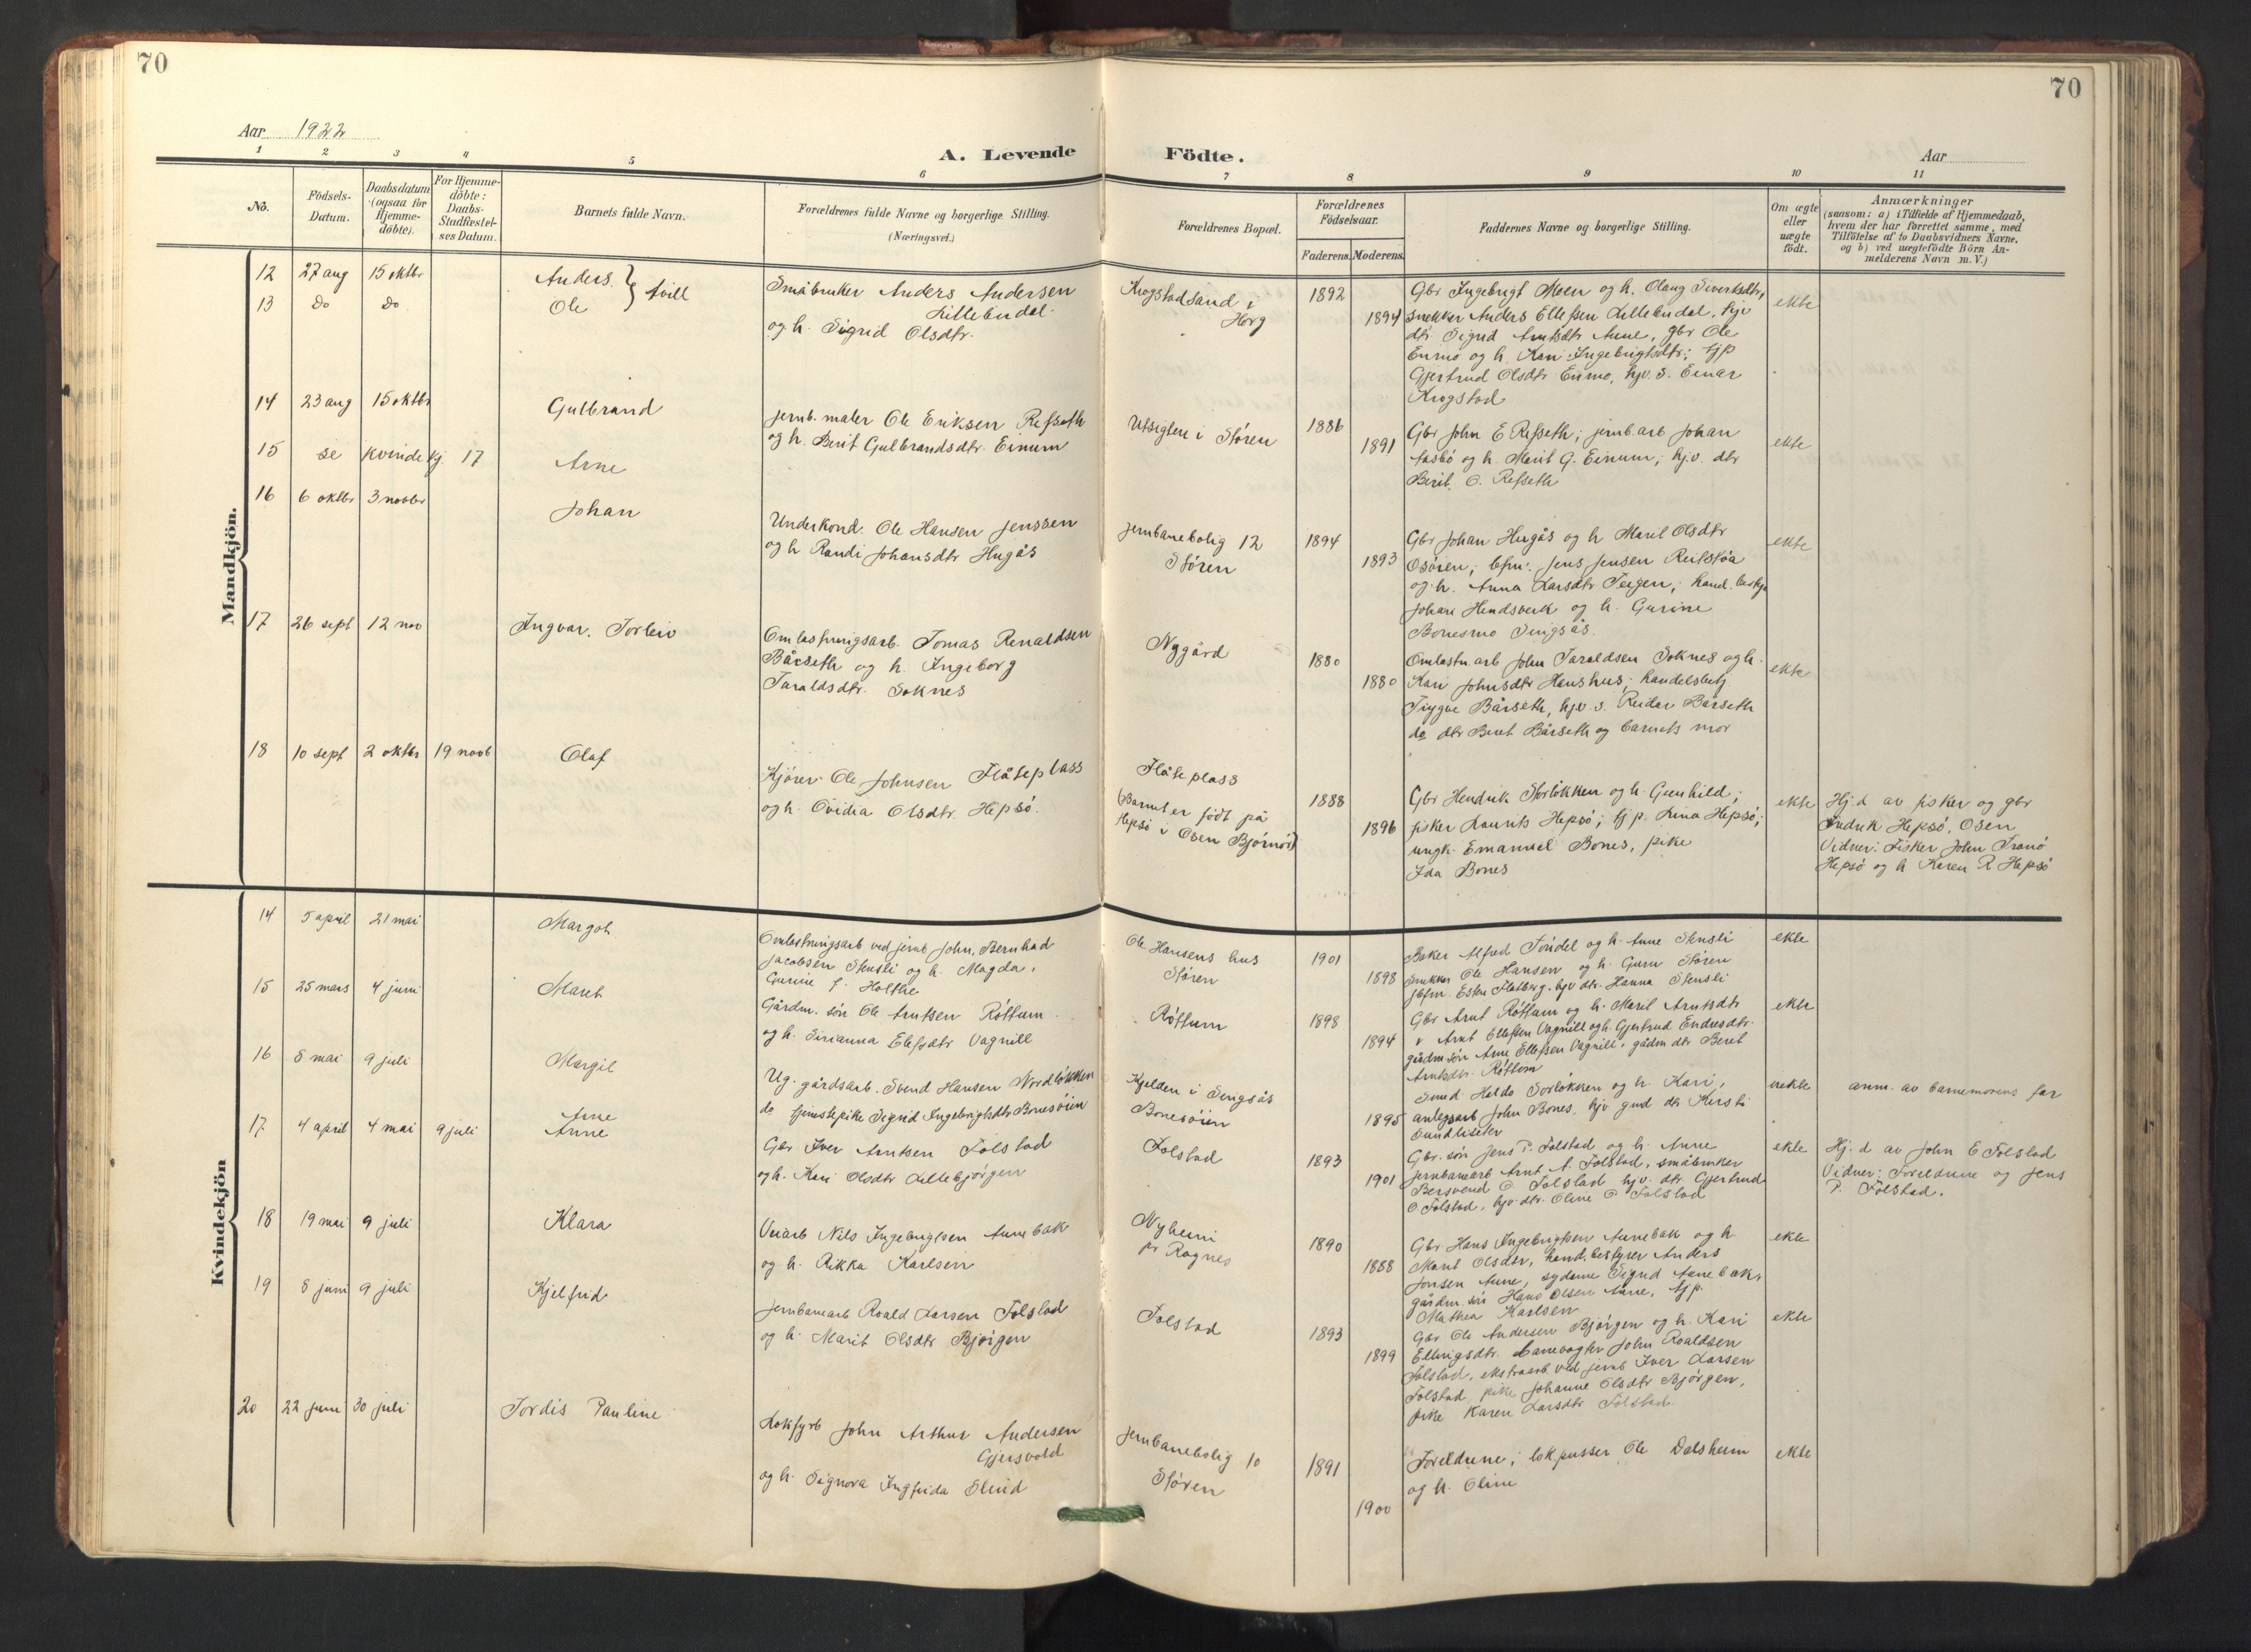 70
70
Aar 1922
A. Levende Födte.
Aar
1 2 3 4 5 6 7 8 9 10 11
No.
Födsels-
Datum.
Daabsdatum
(ogsaa för
Hjemme-
döbte).
For Hjemme-
döbte:
Daabs-
Stadfæstel-
ses Datum.
Barnets fulde Navn.
Forældrenes fulde Navne og borgerlige Stilling.
(Næringsvei.)
Forældrenes Bopæl.
Forældrenes
Födselsaar.
Faderens. Moderens.
Faddernes Navne og borgerlige Stilling.
Om ægte
eller
uægte
födt.
Anmærkninger
(saasom: a) i Tilfælde af Hjemmedaab,
hvem der har forrettet samme, med
Tilföielse af to Daabsvidners Navne,
og b) ved uægtefödte Börn An-
melderens Navn m. V.)
Mandkjön.
12 27 aug 15 oktbr Anders } tvill
13 do do Ole
Småbruker Anders Andersen
Lillebudal
og h. Sigrid Olsdtr.
Krogstadsand i
Horg
1892
1894
Gbr Ingebrigt Moen og h. Olaug Sivertsdtr,
snekker Anders Ellefsen Lillebudal, hjv
dtr Sigrid Arntsdtr Aune, gbr Ole
Enmo og h. Kari Ingebrigtsdtr; tjp
Gjertrud Olsdtr Enmo, hjv. s. Einar
Krogstad
ekte
14 23 aug 15 oktbr Gulbrand
jernb. maler Ole Eriksen Refseth
og h. Berit Gulbrandsdtr. Einum
Utsigten i Støren
1886
1891
Gbr John E Refseth; jernb.arb Johan
og h. Marit G. Einum; hjv. dtr
Berit. O. Refseth
ekte
15 se kvindekj. 17 Arne
16 6 oktbr 3 novbr Johan
Underkond. Ole Hansen Jenssen
og h Randi Johansdtr Hugås
jernbanebolig 12
Støren
1894
1893
Gbr Johan Hugås og h Marit Olsdtr
Osøren; bfm. Jens Jensen Reitstøa
og h. Anna Larsdtr Teigen; hand.besty
Johan Hendsverk og h. Gurine
Bonesmo Singsås.
ekte
17 26 sept 12 nov Ingvar. Torleiv
Omlastningsarb. Tomas Renaldsen
Bårseth og h. Ingeborg
Taraldsdtr. Soknes
Nygård
1880
1880
Omlastn arb John Taraldsen Soknes og h.
Kari Johnsdtr Haushus; handelsbetj
Trygve Bårseth, hjv. s. Reidar Bårseth
do dtr Berit Bårseth og barnets mor
ekte
18 10 sept 2 oktbr 19 novb Olaf
Kjører Ole Johnsen Flåteplass
og h. Ovidia Olsdtr. Hepsö.
Flåteplass
(Barnet er födt på
Hepsö i Osen Bjørnør)
1888
1896
Gbr Hendrik Storlökken og h. Gunhild;
fisker Laurits Hepsö; tj p. Lina Hepsö;
ungk. Emanuel Bones, pike
Ida Bones
ekte
Hj.d av fisker og gbr
Hepsö, Osen
Vidner: Fisker John Tranö
Hepsö og h Karen R Hepsö
Kvindekjön
14 5 april 21 mai Margot
Omlastningsarb ved jernb John, Bernhad
Jacobsen Stensli og h. Magda,
Gurine J. Holthe
Ole Hansens hus
Støren
1901
1898
Baker Alfred Tondel og h. Anne Stensli
snekker Ole Hansen og h. Guru Støren
jbfm. Esten Flatberg. hjv dtr. Hanna Stensli
ekte
15 25 mars 4 juni Marit
Gårdm. sön Ole Arntsen Röttum
og h. Sirianna Elefsdtr Vagnill
Röttum
1898
1894
Gbr Arnt Röttum og h. Marit Arntsdtr
" Arnt Ellefsen Vagnill og h. Gjertrud Endresdtr.
gårdm sön Arne Ellefsen Vagnill, gådm dtr Beret
Arntsdtr. Röttum
ekte
16 8 mai 9 juli Margit
Ug. gårdsarb. Svend Hansen Nordlökken
do tjenestepike Sigrid Ingebrigtsdtr Bonesöien
Kjelden i Singsås
Bonesöien
1895
Smed Haldo Sorlökken og h. Kari,
anlegsarb John Bones, hjv gmd dtr Kirsti
Sundliseter
uekte
anm. av barnemorens far
17 4 april 4 mai 9 juli Arne
Anne
Gbr Iver Arntsen Folstad
og h. Kari Olsdtr Lillebjørgen
Folstad
1893
1901
Gbr. sön Jens P. Folstad og h. Anne
jernbanearb Arnt A. Folstad, småbruker
Bersvend O. Folstad hjv. dtr. Gjertrud
O. Folstad, hjv dtr. Oline O Folstad
ekte
Hj. d av John E Folstad
Vidner: Foreldrene og Jens
P. Folstad.
18 19 mai 9 juli Klara
Veiarb Nils Ingebrigtsen Aunebak
og h. Rikka Karlsen
Nyheim
pr Rognes
1890
1888
Gbr Hans Ingebrigtsen Aunebak og h
Marit Olsdtr, hand.bestyrer Anders
Jonsen Aune, sydame Sigrid Aunebak,
gårdm. sön Hans Olsen Aune, tjp.
Mathea Karlsen
ekte
19 8 juni 9 juli Kjelfrid
Jernbanearb Roald Larsen Folstad
og h. Marit Olsdtr Bjørgen
Folstad
1893
1899
Gbr Ole Andersen Bjørgen og h. Kari
Ellingsdtr. banevogter John Roaldsen
Folstad, ekstraarb. ved jernb Iver Larsen
Folstad pike Johanne Olsdtr Bjørgen,
pike Karen Larsdtr Folstad.
ekte
20 22 juni 30 juli Tordis Pauline
Lokfyrb John Arthur Andersen
Gjersvold
og h. Signora Ingfrida Elind
jernbanebolig 10
Støren
1891
1900
Foreldrene; lokpusser Ole Dalsheim
og h. Oline
ekte